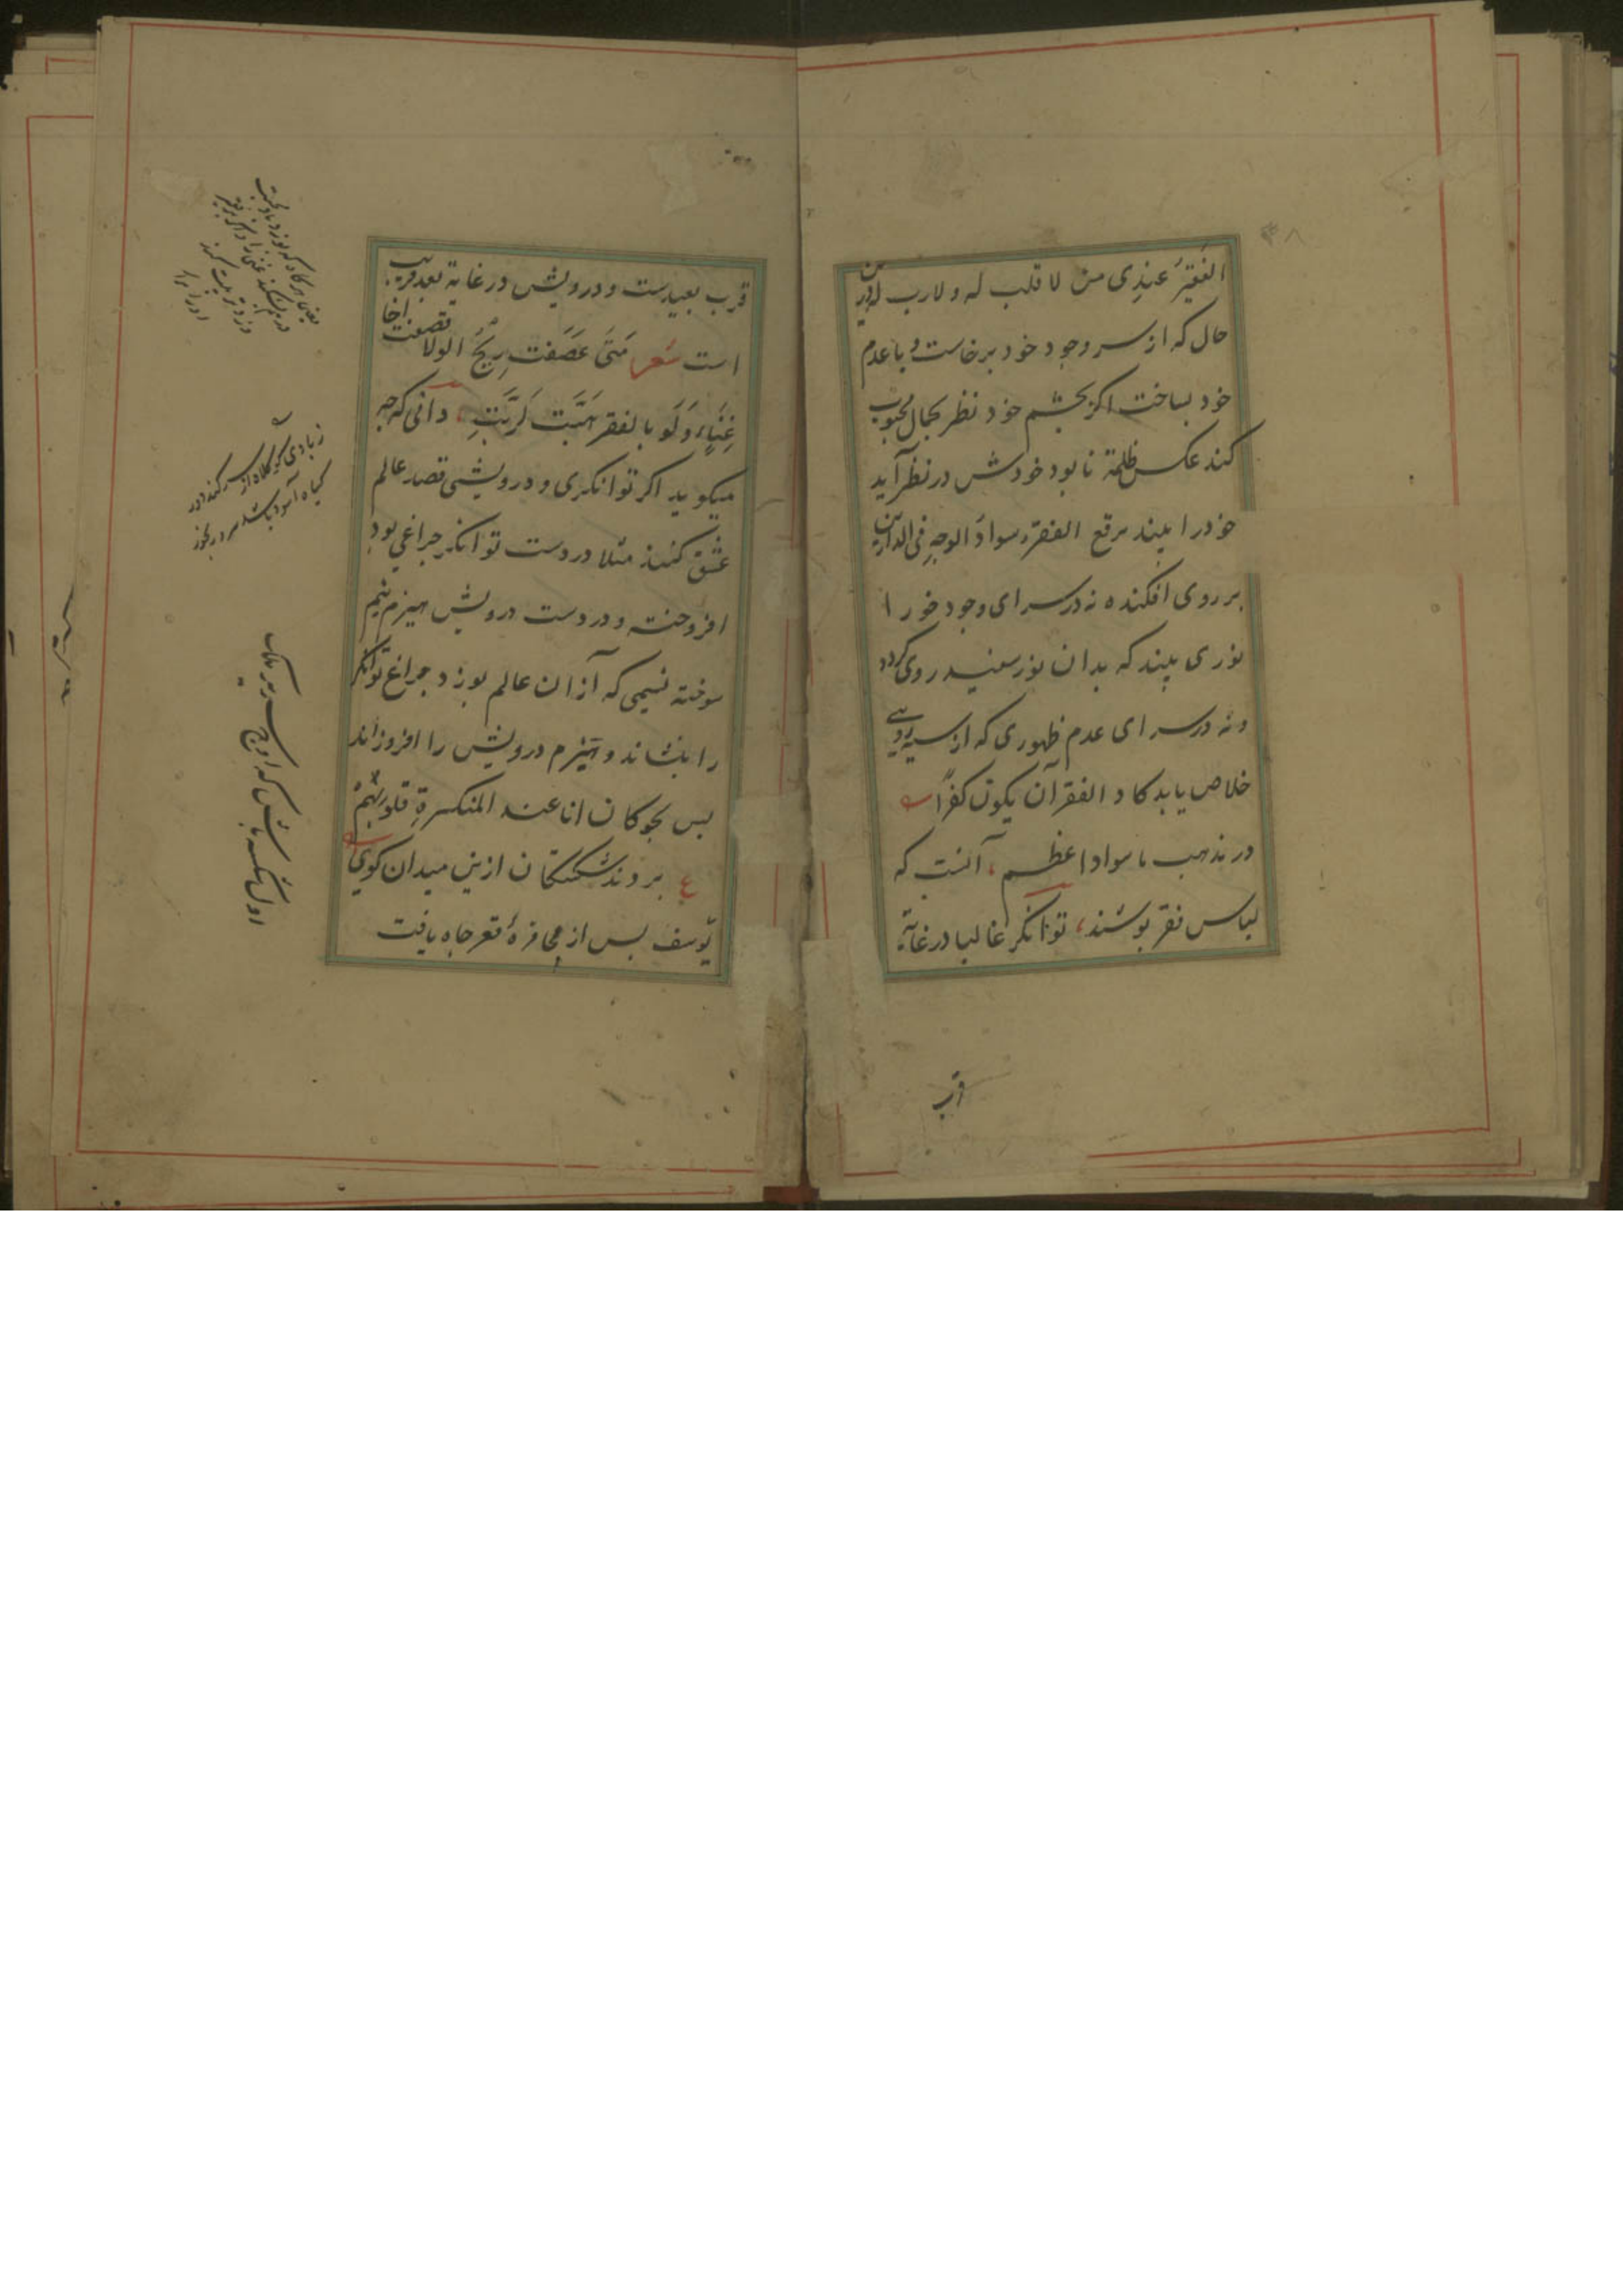 الفَقیرُ عِندِی من لا قلب له و لا رب له درین
حال که از سر وجود خود برخاست و با عدم
خود بساخت اکر بچشم خود نظر بجمال محبوب
کند عکس ظلمة نابود خودش در نظر آید
خود را بیند برقع الفقر سوادُ الوجهِ فی الدارین
بر روی افکنده نه در سرای وجود خود را
نوری بیند که بدان نور سفید روی کردد
و نه در سرای عدم ظهوری که از سیه رویی
خلاص یابد کاد الفقر آن یکون کفرًا
در مذهب ما سواد اعظم آنست که
لباس فقر پوشند، توانکر غالبا در غایة
قرب
قرب بعیدست و درویش در غایة بعد قریب
است شعر مَتَی عَصَفَت رِیحُ الولا قصفت اخا
غِنَاءٍ وَلَو بالفقر هَبَّت لَرَبَّتِ، دانی که چه
میکوید اکر توانکری و درویشی قصد عالم
عشق کنند مثلا در دست توانکر چراغی بود
افروخته و در دست درویش هیزم نیم
سوخته نسیمی که از آن عالم بوزد چراغ توانکر
را بنشاند و هیزم درویش را افروزاند
بس بجو کان انا عند المنکسرةِ قلوبهُم
ع برند شکستکان ازین میدان کوی
یوسف بس از مجافزهٔ قعر جاه یافت
یعنی هر کاه که بوزد باد محبت
اول شکسته باش که اوج سریر ملک